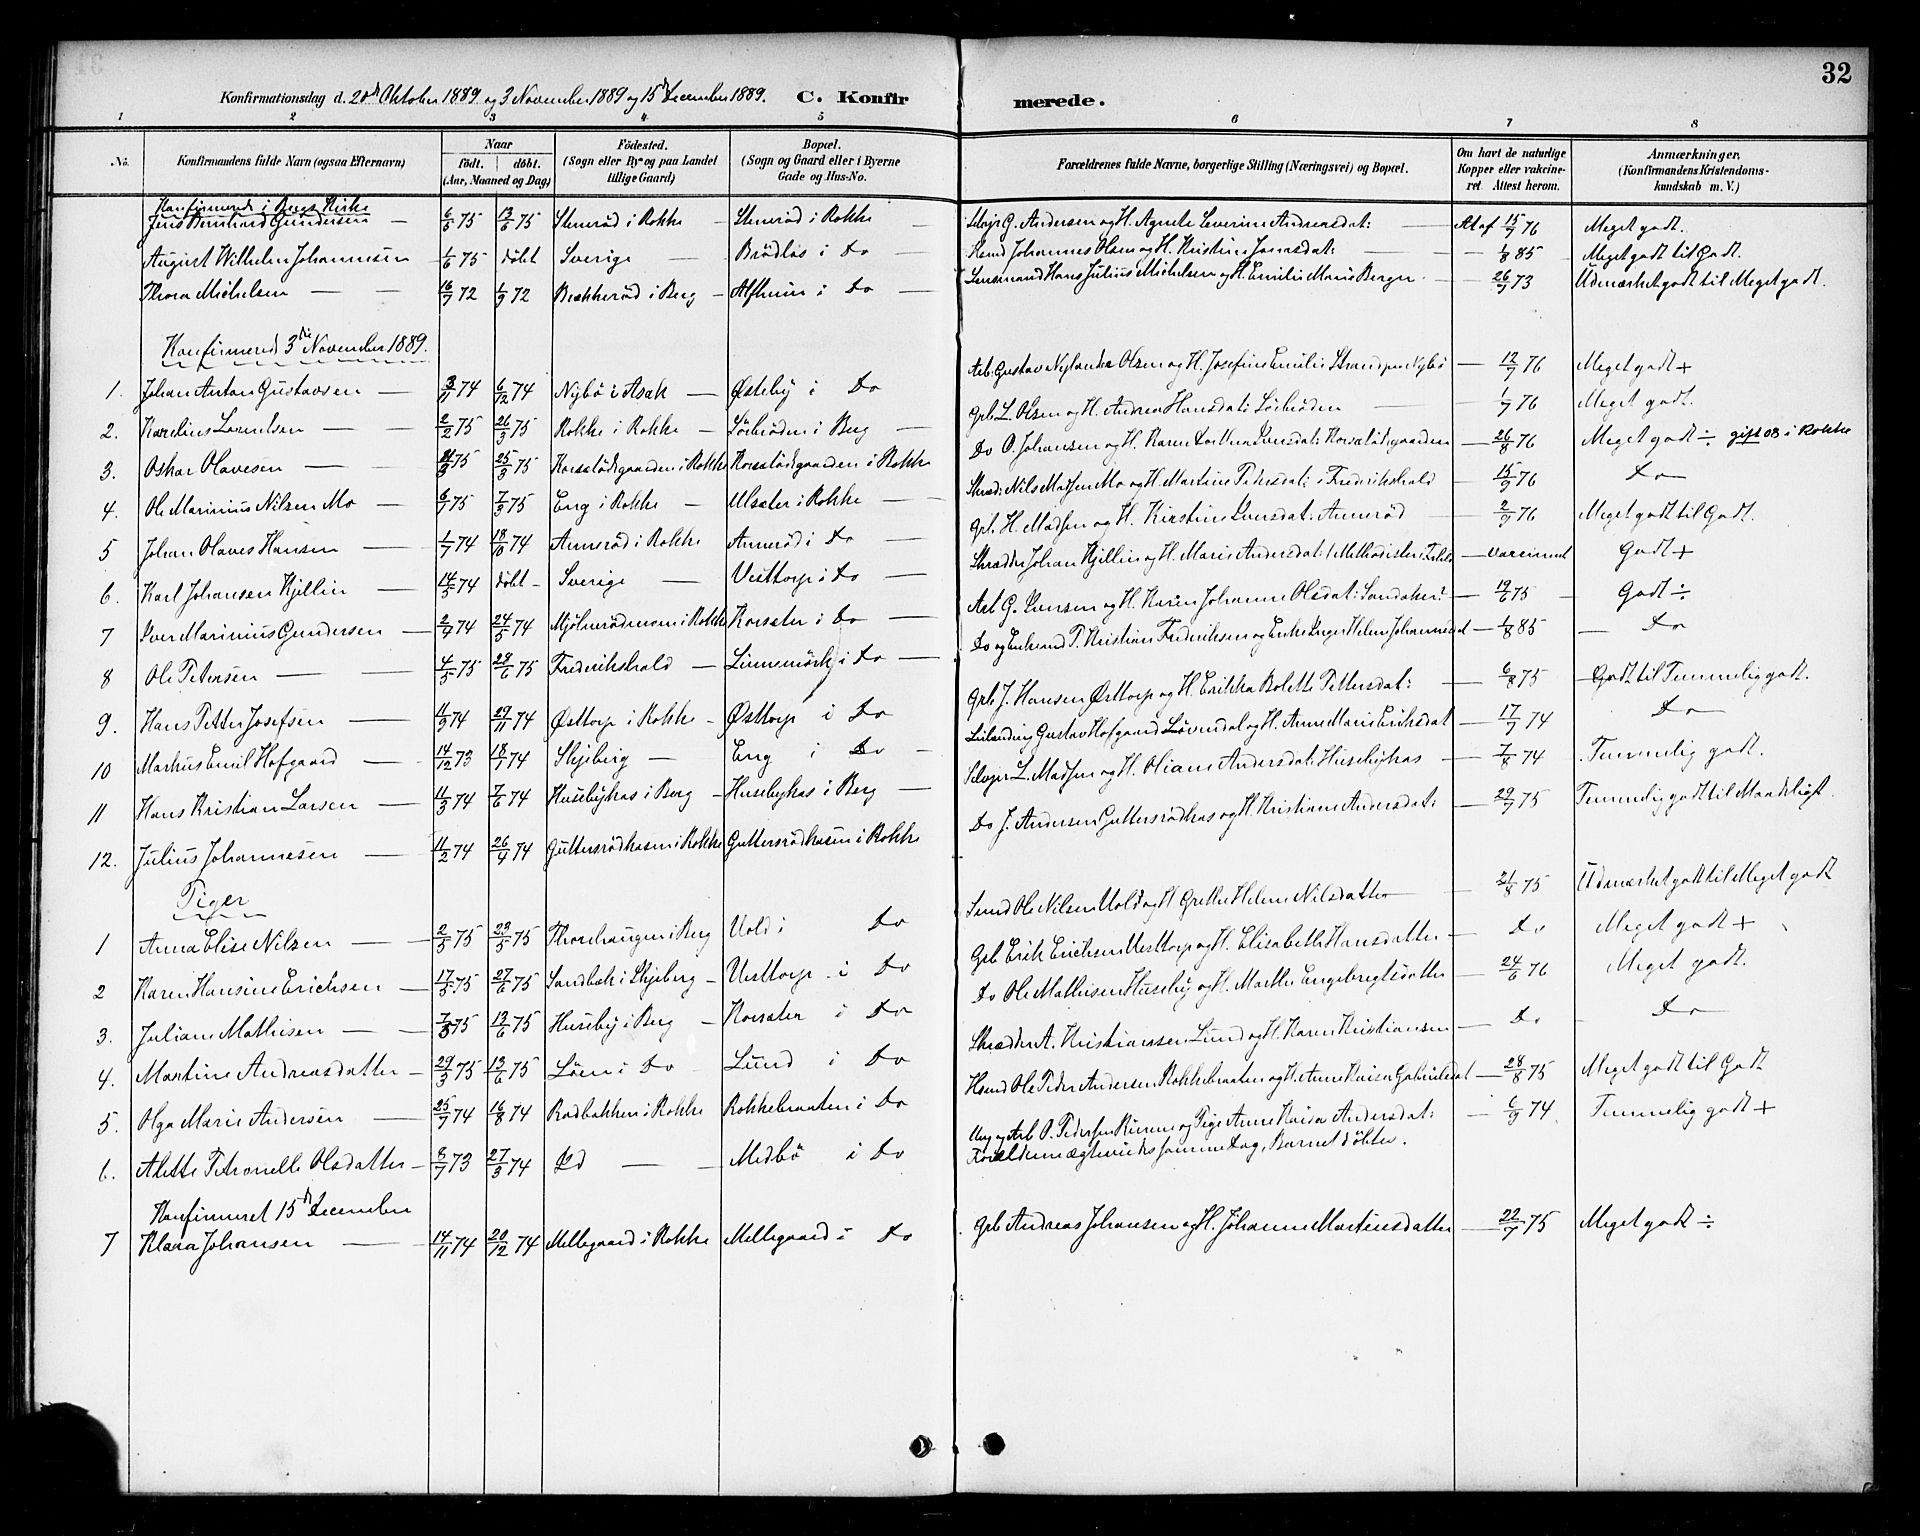 32
Konfirmationsdag d. 20de Oktober 1889 og 3 November 1889 og 15de December 1889. C. Konfirmerede.
1 2 3 4 5 6 7 8
No. Konfirmandens fulde Navn (ogsaa Efternavn) Naar født. døbt. (Aar, Maaned og Dag) Fødested. (Sogn eller By og paa Landet tillige Gaard) Bopæl. (Sogn og Gaard eller i Byerne Gade og Hus-No. Forældrenes fulde Navne, borgerlige Stilling (Næringsvei) og Bopæl. Om havt de naturlige Kopper eller vakcineret. Attest herom. Anmærkninger, (Konfirmandens Kristendomskundskab m. V.)
Konfirmerede i Bergs Kirke
Jens Bernhard Gundersen — 6/6 75 13/6 75 Stenerød i Rokke — Stenerød i Rokke — Selvejer G. Andersen og H. Agnete Severine Andreasdat: — At af 15/9 76 Meget godt.
August Wilhelm Johannesen 1/6 75 døbt Sverige — Brødløs i Do — Johannes Olsen og H. Kristine Jonasdat: — 1/8 85 Meget godt til Godt.
Thora Michelsen — 16/7 72 1/9 72 Bækkerød i Berg — Alfheim i Do — Lensmand Hans Julius Michelsen og H. Emilie Marie Berger — 26/9 73 Udmærket godt til Meget godt.
Konfirmered 3die November 1889.
1. Johan Anton Gustavsen — 3/9 74 6/12 74 Nybø i Asak — Østeby i Do Arb. Gustav Nylander Olsen og H. Josefine Emilie Strand paa Nybø — 12/9 76 Meget godt +
2. Karelius Laurentsen — 2/2 75 26/3 75 Rokke i Rokke — Sørbrøden i Berg — Grb. L. Olsen og H. Andrea Hansdat: Sørbrøden — 1/7 76 Meget godt.
3. Oskar Olavesen — 21/3 75 25/3 75 Korsetødegaarden i Rokke Korsetødegaarden i Rokke Do O. Johansen og H. Karen Dorthea Iversdat: Korsetødegaarden — 26/8 76 Meget godt ÷ gift 08 i Rokke
4. Ole Marinius Nilsen Mo — 6/7 75 7/3 75 Eng i Rokke — Ulsæter i Rokke — Skræd: Nils Madsen Mo og H. Martine Pedersdat: i Frederikshald — 15/9 76 Do
5 Johan Olaves Hansen — 1/7 74 18/10 74 Annerød i Rokke Annerød i Do — Grb. H. Madsen og H. Kirstine Iversdat: Annerød — 2/9 76 Meget godt til Godt.
6. Karl Johansen Kjellin — 14/5 74 døbt — Sverige — Vesttorp i Do — Skrædder Johan Kjellin og H. Marie Andersdat: (Methodister) — vaccineret Godt +
7 Iver Marinius Gundersen — 2/9 74 24/5 74 Mjølnerødmoen i Rokke Korsæter i Do — Arb G. Iversen og H. Karen Johanne Olsdat: Sandaker: — 19/6 75 — Godt ÷
8 Ole Petersen — 4/5 75 28/6 75 Frederikshald — Linnemørk i Do — Do og Enkemand P. Kristian Frederiksen og Enke Inger Helene Johannesdat — 1/8 85 — Do
9. Hans Petter Josefsen — 11/9 74 29/11 74 Østtorp i Rokke — Østtorp i Do Grb J. Hansen Østtorp og H. Erikka Bolette Pettersdat: — 6/8 75 — Godt til Temmelig godt.
10 Markus Emil Hofgaard — 14/12 73 18/1 74 Skjeberg — Eng i Do — Leilænding Gustav Hofgaard Løvendal og H. Anne Marie Eriksdat — 17/7 74 Do
11 Hans Kristian Larsen — 11/3 74 7/6 74 Husebyhas i Berg — Husebyhas i Berg — Selvejer L. Madsen og H. Oliane Andersdat: Husebyhas — 7/8 74 Temmelig godt.
12. Julius Johannesen — 11/2 74 26/4 74 Guttersrødhasen i Rokke Guttersrødhasen i Rokke Do J. Andersen Guttersrødhas og H. Kristiane Andersdat: — 29/7 75 Temmelig godt til Maadeligt.
Piger
1 Anna Elise Nilsen — 2/5 75 23/5 75 Thorehaugen i Berg Vold i Do Smed Ole Nilsen Vold og H Grethe Helene Nilsdatter — 21/8 75 Udmærket godt til Meget godt
2 Karen Hansine Erichsen — 17/5 75 27/6 75 Sandbæk i Skjeberg — Vesttorp i Do Grb Erik Erichsen Vesttorp og H. Elisabeth Hansdatter — Do Meget godt +
3. Juliane Mathisen — 7/3 75 13/6 75 Huseby i Berg — Korsæter i Do Do Ole Mathisen Huseby og H. Marthe Engebregtsdatter — 24/6 76 Meget godt.
4. Martine Andreasdatter — 29/3 75 13/6 75 Løen i Do — Lund i Do Skrædder A. Kristiansen Lund og H. Karen Kristiansen — Do — Do
5. Olga Marie Andersen — 25/7 74 16/8 74 Rødbakken i Rokke Rokkebraaten i Do Hsmd Ole Peder Andersen Rokkebraaten og H. Anne Kaisa Gabrielsdat — 28/8 75 Meget godt til Godt
6. Alette Petronelle Olsdatter — 8/7 73 27/3 74 Id — Medbø i Do Ung og Arb O. Pedersen og Pige Anne Kaisa Andersdat: Forældrene ægteviedes samme Dag, Barnet døbtes. — 6/9 74 Temmelig godt +
Konfirmeret 15de December
7 Klara Johansen — 14/11 74 20/12 74 Mellegaard i Rokke Mellegaard i Do Grb Andreas Johansen og H. Johanne Martinsdatter — 22/7 75 Meget godt ÷